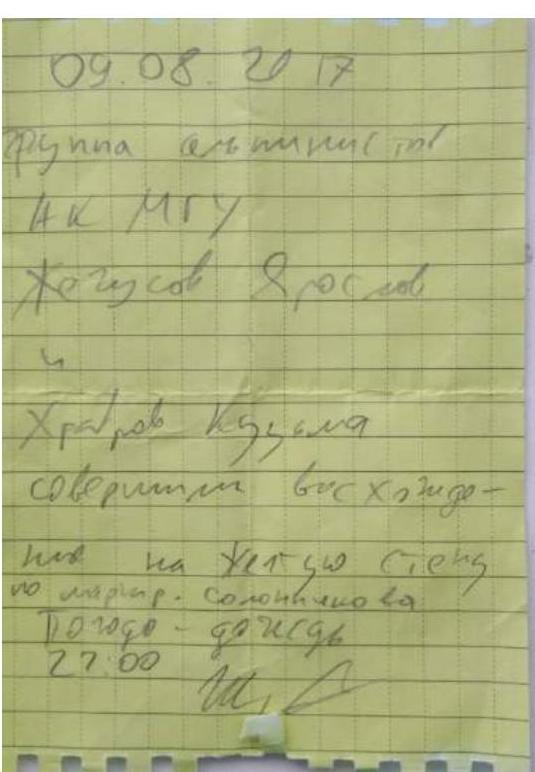 09.08.2017
группа альпинистов
АК МГУ
Ярослав
и
Храбров Кузьма
совершили восхожде-
ние на Желтую стену
по маршр. Солонникова
Погода - дождь
22:00